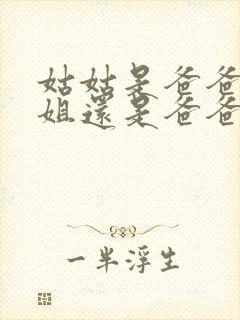 姑姑是爸爸
姐還是爸爸
一半浮生